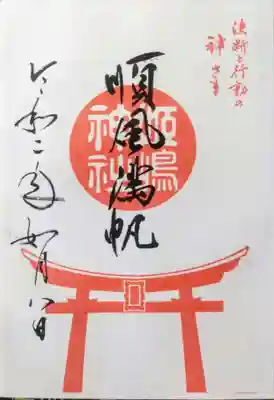 決断と行動の
神さま
順風満帆
姫嶋
神社
令和二年如月八日